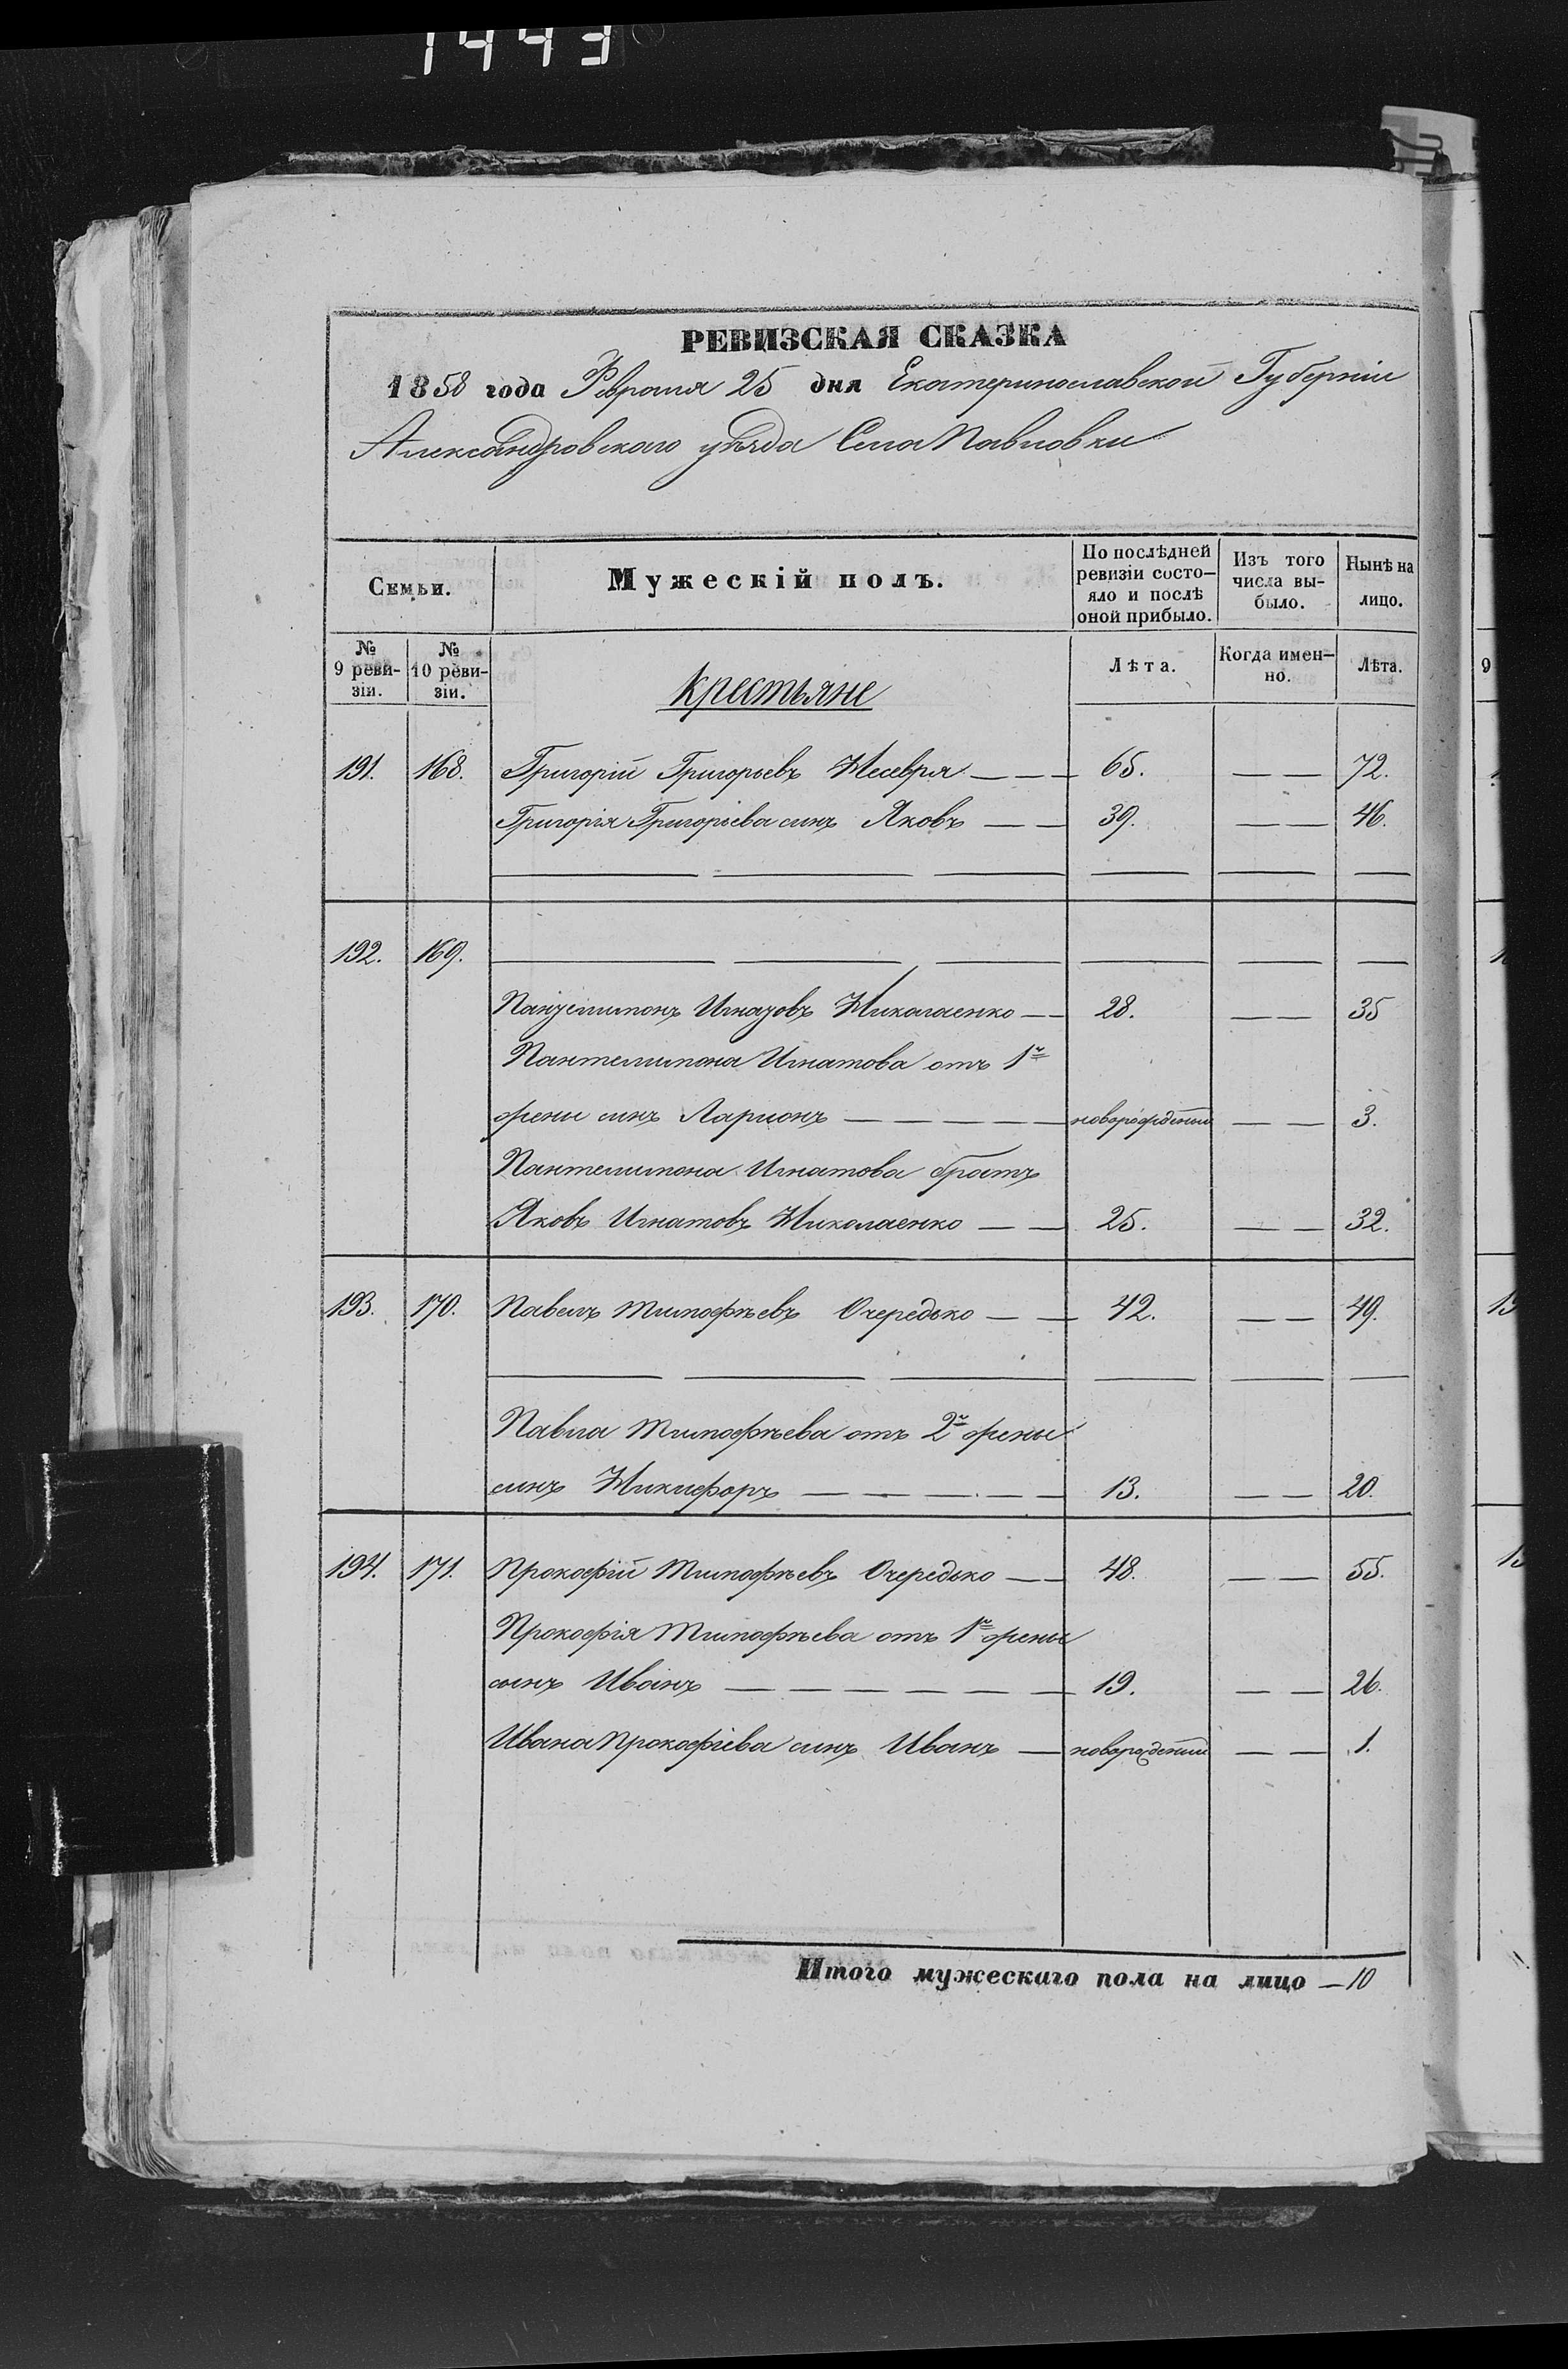 1443
РЕВИЗСКАЯ СКАЗКА
1858 года Февраля 25 дня Екатеринославской Губерніи
Александровскаго уѣзда Села Павловки
Семьи. Мужескій полъ. По послѣдней ревизіи состо-яло и послѣ оной прибыло. Изъ того числа вы-было. Нынѣ на лицо.
№ 9 реви-зіи. № 10 реви-зіи. Лѣта. Когда имен-но. Лѣта.
Крестьяне
191. 168. Григорій Григорьевъ — — — 65. — — 72.
Григорія Григорьева синъ Яковъ — — 39. — — 46.
192. 169.
Пантелимонъ Игнатовъ Николаенко — — 28. — — 35
Пантелимона Игнатова отъ 1й
жены синъ Ларионъ — — — — — новорожденный — — 3.
Пантелимона Игнатова братъ
Яковъ Игнатовъ Николаенко — — 25. — — 32.
193. 170. Павелъ Тимофѣевъ Очередько — — 42. — — 49.
Павла Тимофѣева отъ 2й жены
синъ Никифоръ — — — — — 13. — — 20.
194. 171. Прокофій Тимофѣевъ Очередько — — 48. — — 55.
Прокофія Тимофѣева отъ 1й жены
сынъ Иванъ — — — — — — 19. — — 26.
Ивана Прокофіева синъ Иванъ — новорожденный — — 1.
Итого мужескаго пола на лицо — 10
9